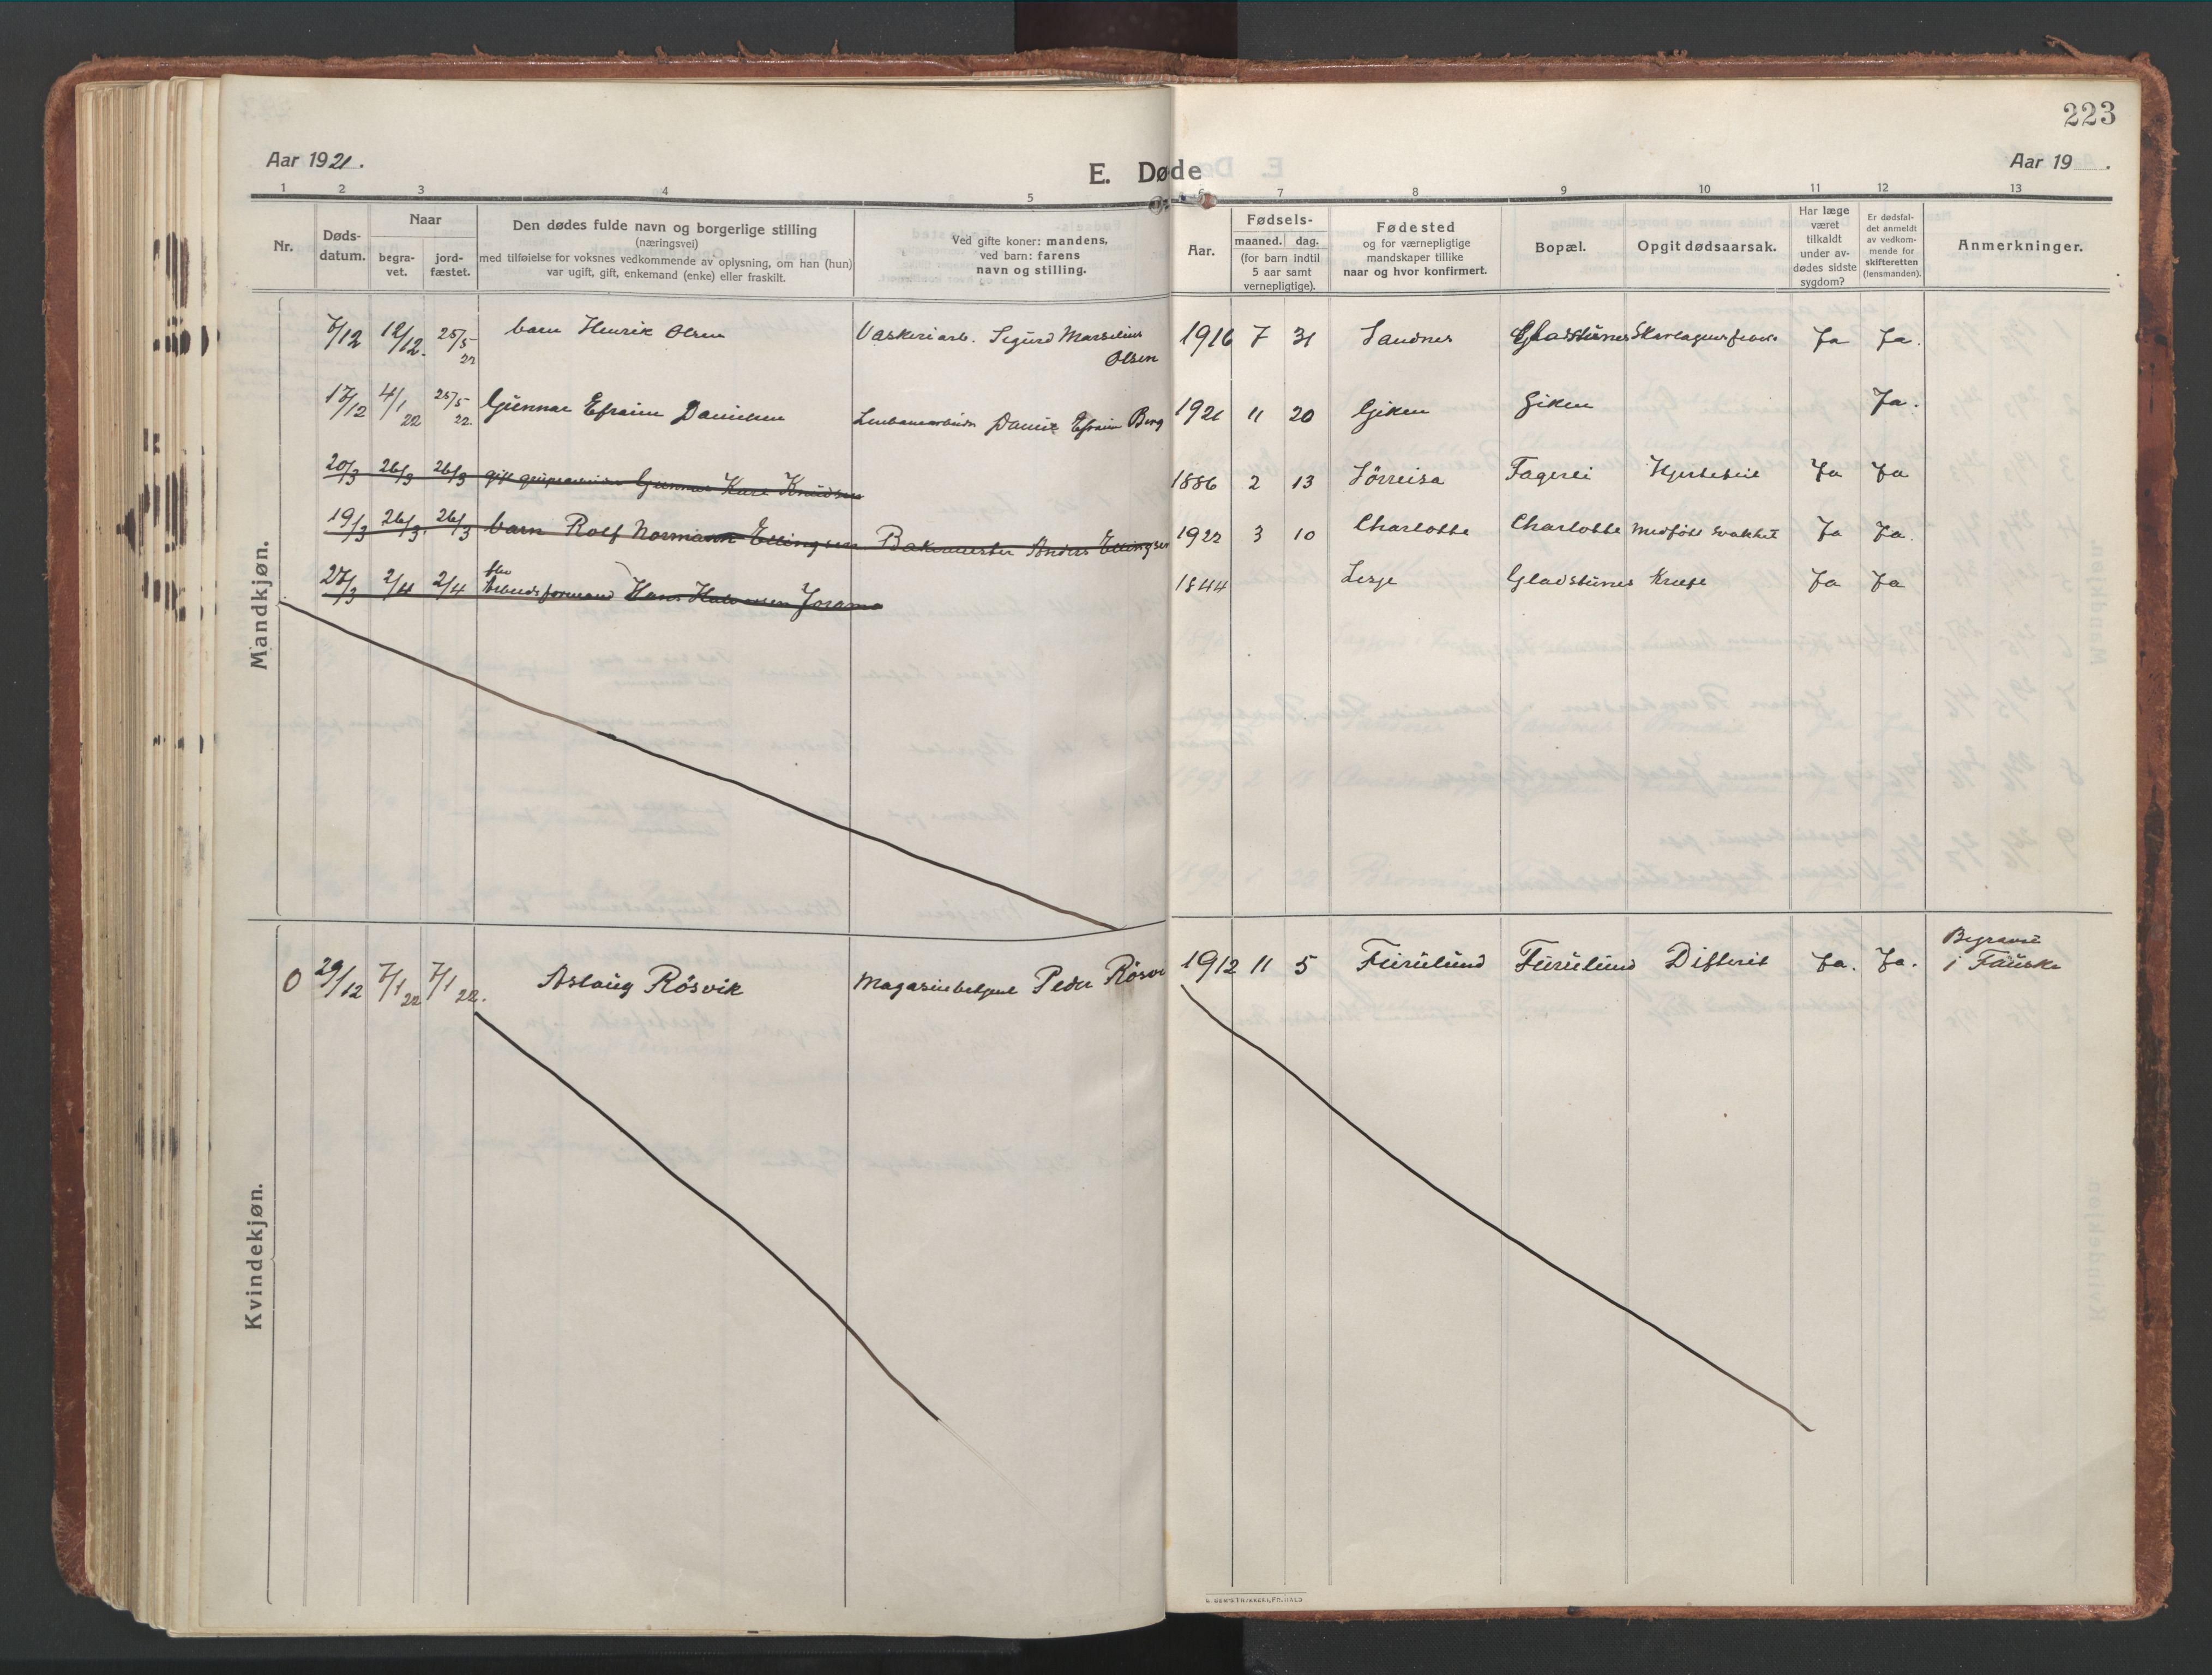 223
Aar 1921.
E. Døde
Aar 19 .
1 2 3 4 5 6 7 8 9 10 11 12 13
Nr.
Døds-
datum.
Naar
begra-
vet.
jord-
fæstet.
Den dødes fulde navn og borgerlige stilling
(næringsvei)
med tilføielse for voksnes vedkommende av oplysning, om han (hun)
var ugift, gift, enkemand (enke) eller fraskilt.
Ved gifte koner: mandens,
ved barn: farens
navn og stilling.
Aar.
Fødsels-
maaned. dag.
(for barn indtil
5 aar samt
vernepligtige).
Fødested
og for værnepligtige
mandskaper tillike
naar og hvor konfirmert.
Bopæl.
Opgit dødsaarsak.
Har læge
været
tilkaldt
under av-
dødes sidste
sygdom?
Er dødsfal-
det anmeldt
av vedkom-
mende for
skifteretten
(lensmanden).
Anmerkninger.
Mandkjøn.
7/12 12/12. 25/5 22 barn Henrik Olsen Vaskeriarb. Sigurd Marselius Olsen 1916 7 31 Sandnes Gladstunes Skarlagensfeber Ja Ja.
17/12 4/1 22 25/5 22. Gunnar Efraim Danielsen Daniel Efraim Berg 1921 11 20 Giken Giken Ja.
20/3 26/3 26/3 gift Gunnar Kare Knudsen 1886 2 13 Sörreisa Fagerli Hjertefeil Ja Ja
19/3 26/3. 26/3 barn Rolf Normann Ellingsen Bakermester Anders Ellingsen 1922 3 10 Charlotte Charlotte Medfödt svakhet Ja Ja.
27/3 2/4 2/4 fhv Arbeidsformand Hans Halvorsen Joramo 1844 Lesje Gladstunes Kræft Ja Ja
Kvindekjøn.
0 29/12 7/1 22 7/1 22. Aslaug Rösvik Magasinbetjent Peder Rösvi 1912 11 5 Furulund Furulund Difterit Ja. Ja. Begravet i Fauske